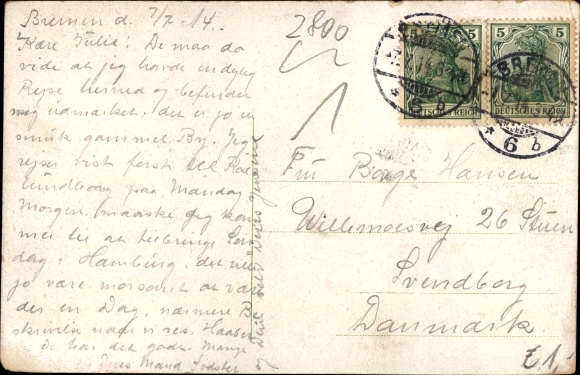 Bremen d. 7/7-14.
Kære Julie! De maa da
vide at jeg havde en dejlig
Rejse herned og befinder
mig udmærket, det er jo en
smuk gammel By. Jeg
rejser vist først til Kal
lundborg paa Mandag
Morgen, maaske jeg kan
naa at tilbringe Søn
dag i Hamburg, det vil
jo være morsomt at være
der en Dag, nærmere
skriver naar vi ses. Haaber
De har det godt. Mange
og
2800
1
Fru Børge Hansen
Willemoesvej 26 Stuen
Svendborg
Danmark
£1,-
5
5
DEUTSCHES REICH
DEUTSCHES REICH
BREMEN
* 6 b